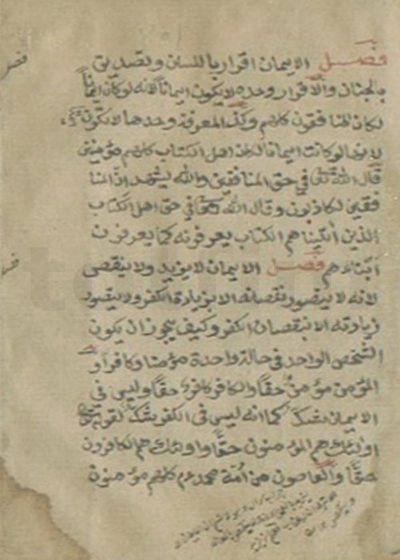 فصل الايمان اقرار باللسان وتصديق
بالجنان والاقرار وحده لا يكون ايمانا لانه لو كان ايمانا
لكان المنافقون كلهم وكذا المعرفة وحدها لا تكون
لانها لو كانت ايمانا لكان اهل الكتاب كلهم مؤمنين
قال الله في حق المنافقين والله يشهد ان المنا
فقين لكاذبون وقال الله في حق اهل الكتاب
الذين آتيناهم الكتاب يعرفونه كما يعرفون
ابناءهم فصل الايمان لا يزيد ولا ينقص
لانه لا يتصور نقصانه الا بزيادة الكفر ولا يتصور
زيادته الا بنقصان الكفر وكيف يجوز ان يكون
الشخص الواحد في حالة واحدة مؤمنا وكافرا و
المؤمن مؤمن حقا والكافر كافر حقا وليس في
الايمان شك كما انه ليس في الكفر شك لقوله
اولئك هم المؤمنون حقا واولئك هم الكافرون
حقا والعاصون من امة محمد كلهم مؤمنون